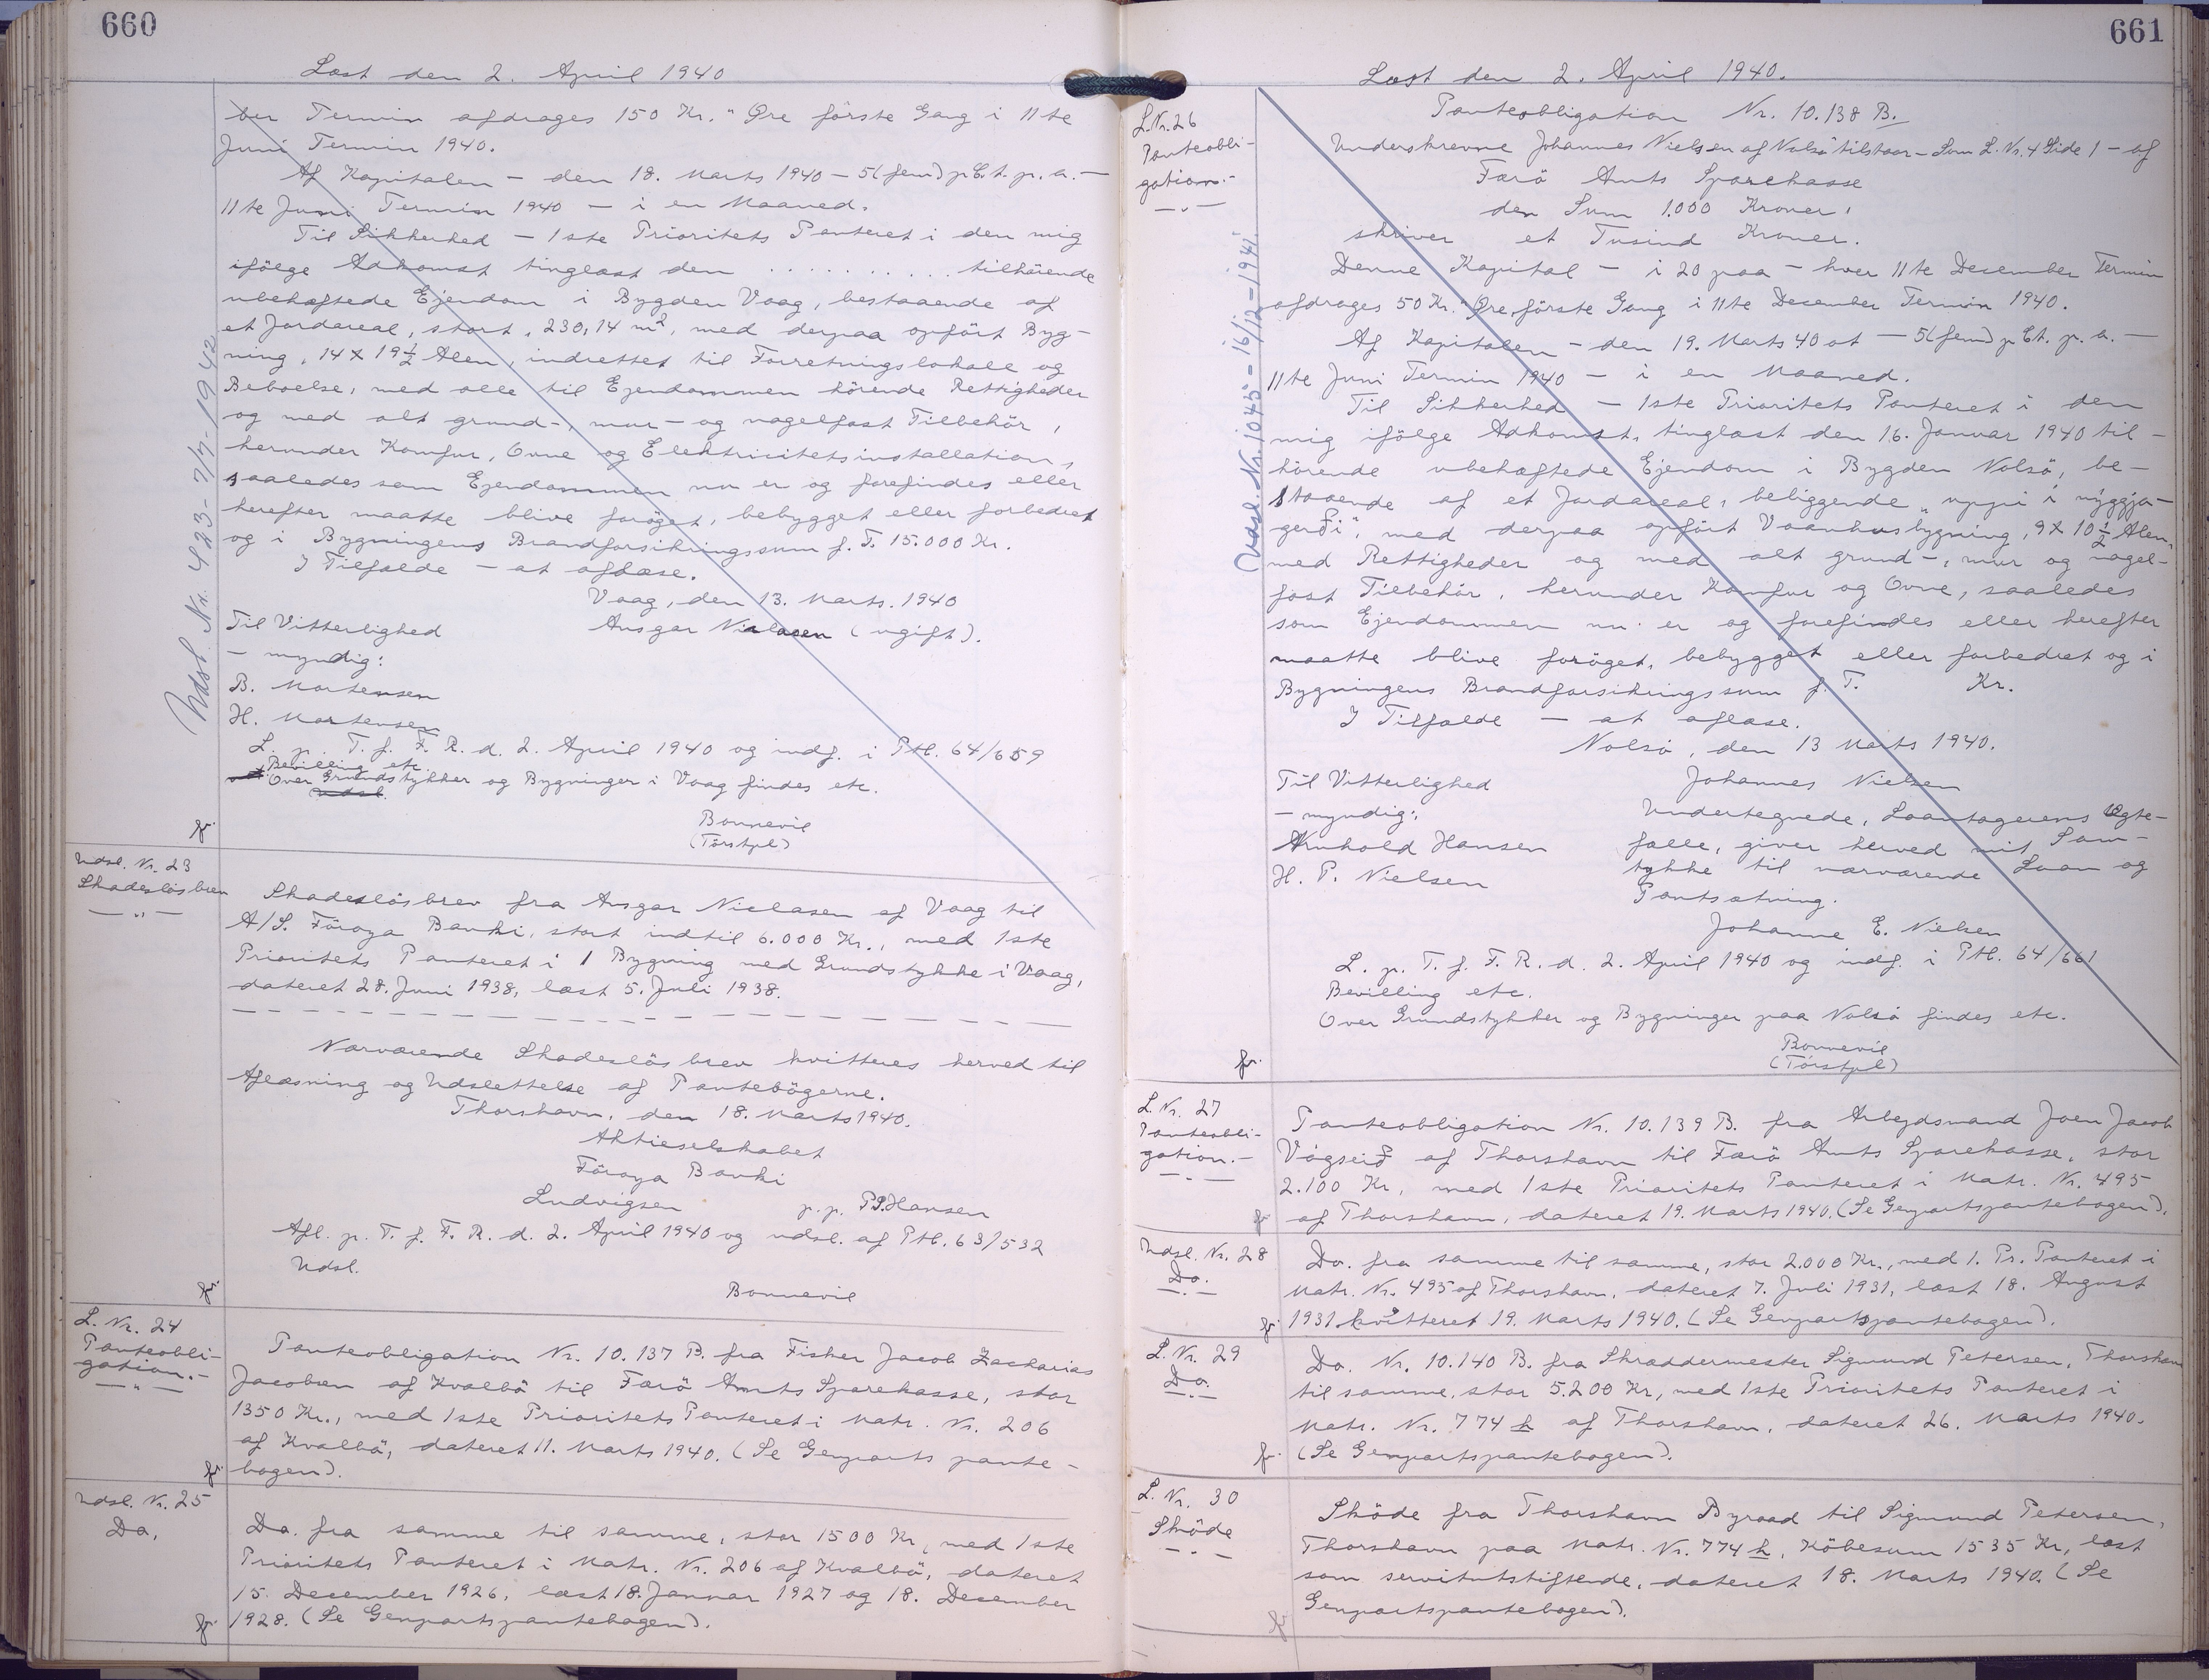 660
Læst den 2. April 1940
ber Termin afdrages 150 Kr. " Øre förste Gang i 11te
Juni Termin 1940.
Af Kapitalen – den 18. Marts 1940 – 5 (fem) p.Ct. p. a. –
11te Juni Termin 1940 – i en Maaned.
Til Sikkerhed – 1ste Prioritets Panteret i den mig
ifölge Adkomst tinglæst den .......... tilhörende
ubehæftede Ejendom i Bygden Vaag, bestaaende af
et Jordareal, stort, 230,14 m², med derpaa opfört Byg-
ning, 14 X 19½ Alen, indrettet til Forretningslokale og
Beboelse, med alle til Ejendommen hörende Rettigheder
og med alt grund-, mur- og nagelfast Tilbehör,
herunder Komfur, Ovne og Elektricitetsinstallation,
saaledes som Ejendommen nu er og forefindes eller
herefter maatte blive foröget, bebygget eller forbedret
og i Bygningens Brandforsikringssum f. T. 15.000 Kr.
I Tilfælde – at aflæse.
Vaag, den 13. Marts. 1940
Til Vitterlighed Ansgar Nielasen (ugift).
– myndig:
B. Mortensen
H. Mortensen
L. p. T. f. F. R. d. 2. April 1940 og indf. i Ptb. 64/659
Bevilling etc.
Over Grundstykker og Bygninger i Vaag findes etc.
Udsl.
Bonnevie
(Tórstpl)
fr.
Udsl. Nr. 423 - 7/7 - 1942
Udsl. Nr. 23
Skadeslösbrev
– " –
Skadeslösbrev fra Ansgar Nielasen af Vaag til
A/S. Föroya Banki, stort indtil 6.000 Kr., med 1ste
Prioritets Panteret i 1 Bygning med Grundstykke i Vaag,
dateret 28. Juni 1938, læst 5. Juli 1938.
Nærværende Skadeslösbrev kvitteres herved til
Aflæsning og Udslettelse af Pantebögerne.
Thorshavn, den 18. Marts 1940.
Aktieselskabet
Föroya Banki
Ludvigsen p. p. P.J. Hansen
Afl. p. T. f. F. R. d. 2. April 1940 og udsl. af Ptb. 63/532
Udsl.
Bonnevie
fr.
L. Nr. 24
Panteobli-
gation.-
– " –
Panteobligation Nr. 10.137 B. fra Fisker Jacob Zacharias
Jacobsen af Kvalbö til Færö Amts Sparekasse, stor
1350 Kr., med 1ste Prioritets Panteret i Matr. Nr. 206
af Kvalbö, dateret 11. Marts 1940. (Se Genparts pante-
bogen).
fr.
Udsl. Nr. 25
Do.
Do. fra samme til samme, stor 1500 Kr, med 1ste
Prioritets Panteret i Matr. Nr. 206 af Kvalbö, dateret
15. December 1926, læst 18. Januar 1927 og 18. December
1928. (Se Genpartspantebogen).
fr.
661
Læst den 2. April 1940.
L. Nr. 26
Panteobli-
gation.-
– " –
Panteobligation Nr. 10.138 B.
Underskrevne Johannes Nielsen af Nolsö tilstaar – Som L. Nr. 4 Side 1 – af
Færö Amts Sparekasse
den Sum 1.000 Kroner,
skriver et Tusind Kroner.
Denne Kapital – i 20 paa – hver 11te December Termin
afdrages 50 Kr. " Øre, förste Gang i 11te December Termin 1940.
Af Kapitalen – den 19. Marts 40 at – 5 (fem) p Ct. p. a. –
11te Juni Termin 1940 – i en Maaned.
Til Sikkerhed – 1ste Prioritets Panteret i den
mig ifölge Adkomst, tinglæst den 16. Januar 1940 til-
hörende ubehæftede Ejendom i Bygden Nolsö, be-
staaende af et Jordareal, beliggende "uppi í nýggja-
gerði", med derpaa opfört Vaanhusbygning, 9 X 10½ Alen,
med Rettigheder og med alt grund-, mur og nagel-
fast Tilbehör, herunder Komfur og Ovne, saaledes
som Ejendommen nu er og forefindes eller herefter
maatte blive foröget, bebygget eller forbedret og i
Bygningens Brandforsikringssum f. T. Kr.
I Tilfælde – at aflæse.
Nolsö, den 13 Marts 1940.
Til Vitterlighed Johannes Nielsen
– myndig: Undertegnede, Laantagerens Ægte-
Arnhold Hansen fælle, giver herved mit Sam-
H. P. Nielsen tykke til nærværende Laan og
Pantsætning.
Johanne E. Nielsen
L. p. T. f. F. R. d. 2. April 1940 og indf. i Ptb. 64/661
Bevilling etc.
Over Grundstykker og Bygninger paa Nolsö findes etc.
Bonnevie
(Tórstpl)
fr.
Udsl. Nr. 1045 - 16/12 - 1941.
L. Nr. 27
Panteobli-
gation.-
– " –
Panteobligation Nr. 10.139 B. fra Arbejdsmand Joen Jacob
Vágseið af Thorshavn til Færö Amts Sparekasse, stor
2.100 Kr, med 1ste Prioritets Panteret i Matr. Nr. 495
af Thorshavn, dateret 19. Marts 1940. (Se Genpartspantebogen).
fr.
Udsl. Nr. 28
Do.
– " –
Do. fra samme til samme, stor 2.000 Kr., med 1. Pr. Panteret i
Matr. Nr. 495 af Thorshavn, dateret 7. Juli 1931, læst 18. August
1931 kvitteret 19. Marts 1940. (Se Genpartspantebogen).
fr.
L. Nr. 29
Do.
– " –
Do. Nr. 10.140 B. fra Skræddermester Sigmund Petersen, Thorshavn
til samme, stor 5.200 Kr, med 1ste Prioritets Panteret i
Matr. Nr. 774 h af Thorshavn, dateret 26. Marts 1940.
(Se Genpartspantebogen).
fr.
L. Nr. 30
Sköde
– " –
Sköde fra Thorshavn Byraad til Sigmund Petersen,
Thorshavn paa Matr. Nr. 774 h, Köbesum 1535 Kr, læst
som servitutstiftende, dateret 18. Marts 1940. (Se
Genpartspantebogen).
fr.